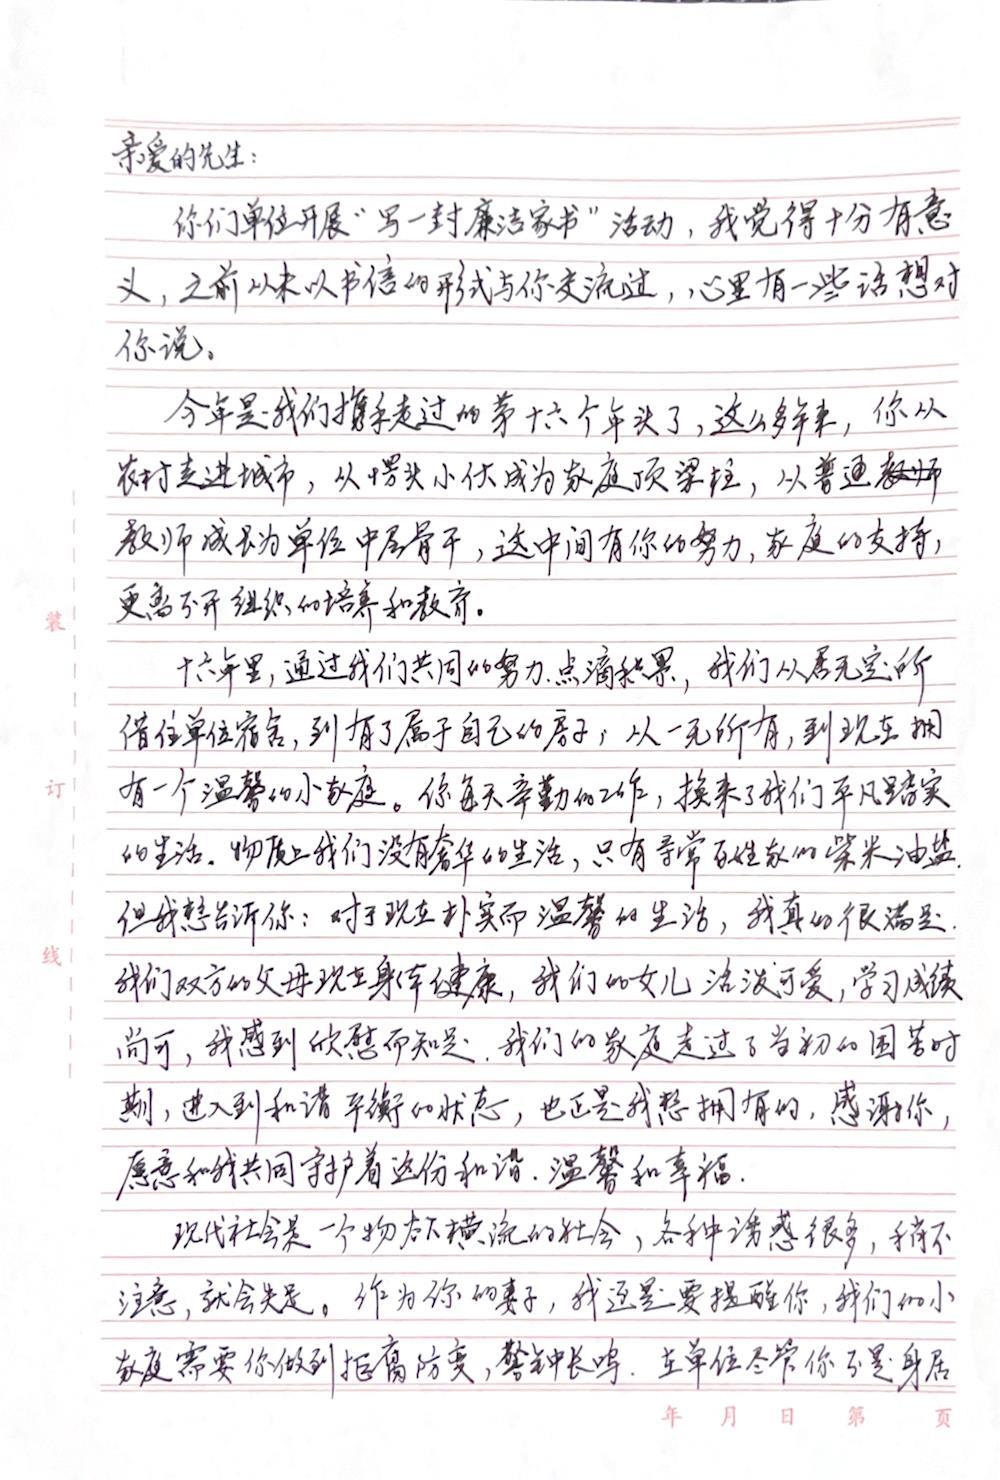 亲爱的先生：
你们单位开展“写一封廉洁家书”活动，我觉得十分有意
义，之前从未以书信的形式与你交流过，心里有一些话想对
你说。
今年是我们携手走过的第十六个年头了，这么多年来，你从
农村走进城市，从愣头小伙成为家庭顶梁柱，从普通教师
教师成长为单位中层骨干，这中间有你的努力，家庭的支持，
更离不开组织的培养和教育。
十六年里，通过我们共同的努力、点滴积累，我们从居无定所
借住单位宿舍，到有了属于自己的房子；从一无所有，到现在拥
有一个温馨的小家庭。你每天辛勤的工作，换来了我们平凡踏实
的生活。物质上我们没有奢华的生活，只有寻常百姓家的柴米油盐.
但我想告诉你：对于现在朴实而温馨的生活，我真的很满足.
我们双方的父母现在身体健康，我们的女儿活泼可爱，学习成绩
尚可，我感到欣慰而知足.我们的家庭走过了当初的困苦时
期，进入到和谐平衡的状态，也正是我想拥有的，感谢你，
愿意和我共同守护着这份和谐、温馨和幸福.
现代社会是一个物欲横流的社会，各种诱惑很多，稍不
注意，就会失足。作为你的妻子，我还是要提醒你，我们的小
家庭需要你做到拒腐防变，警钟长鸣.在单位尽管你不是身居
装
订
线
年 月 日 第 页